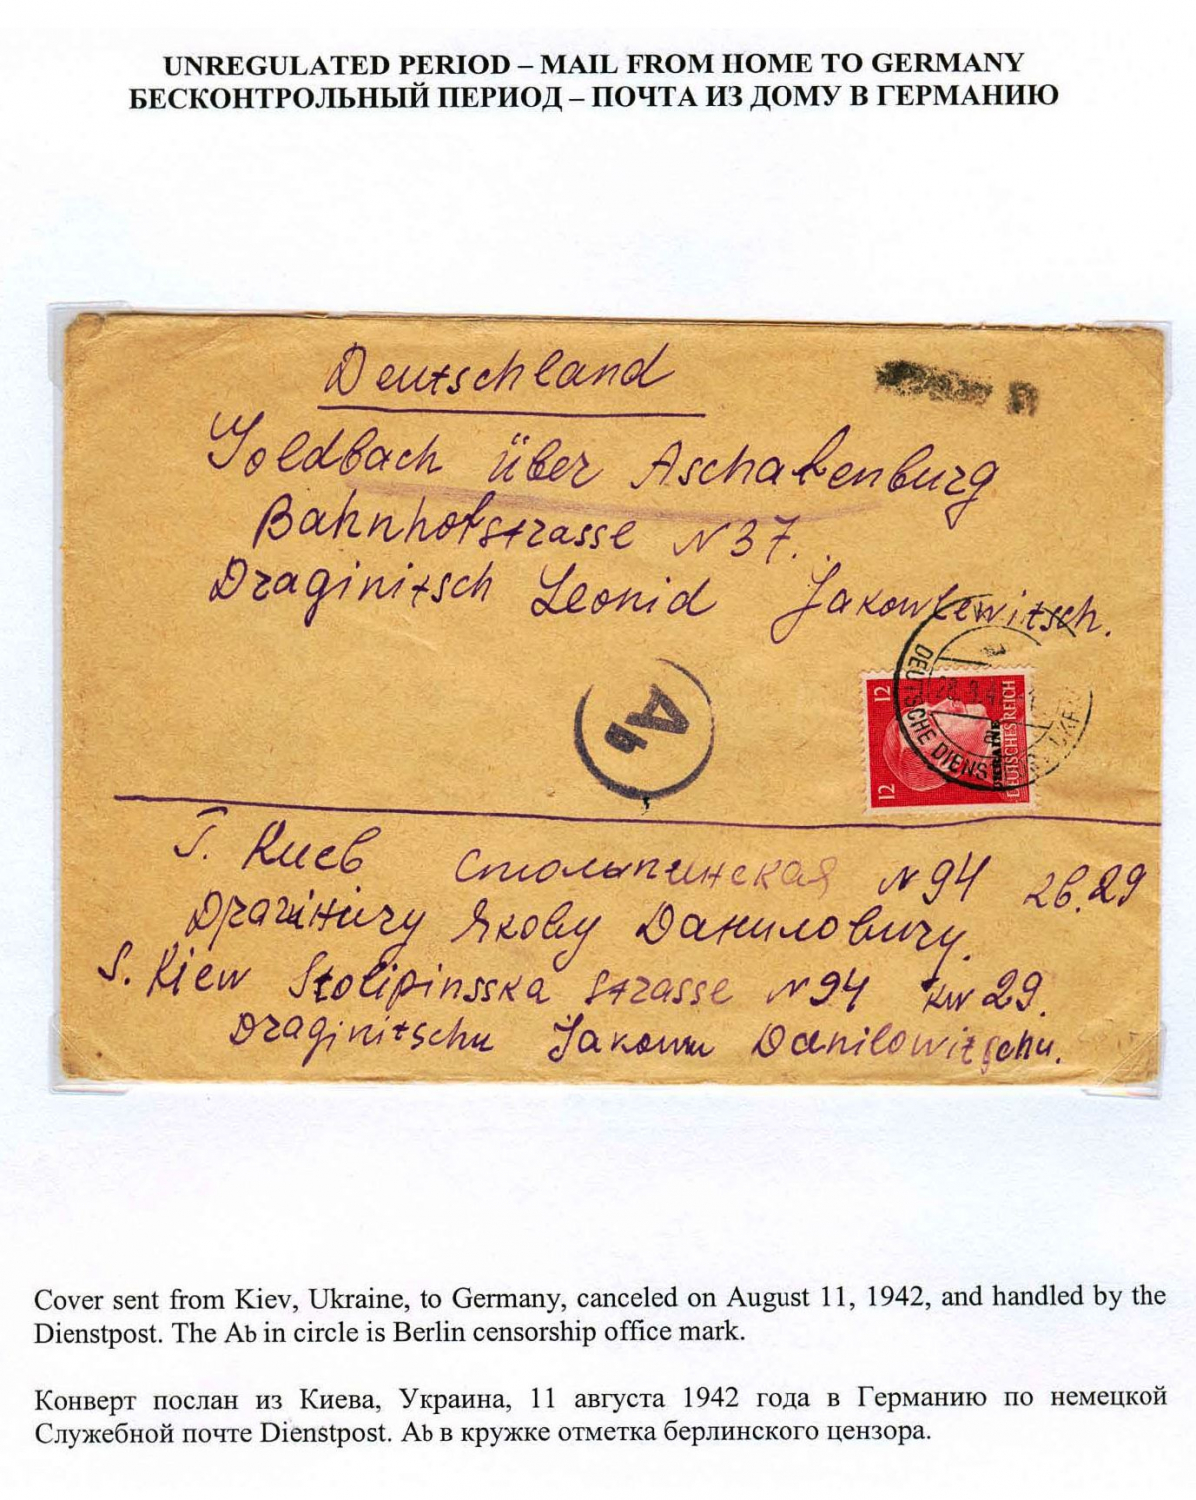 UNREGULATED PERIOD – MAIL FROM HOME TO GERMANY
БЕСКОНТРОЛЬНЫЙ ПЕРИОД – ПОЧТА ИЗ ДОМУ В ГЕРМАНИЮ
Deutschland
Goldbach über Aschafenburg
Bahnhofstrasse N 37.
Draginitsch Leonid Jakowlewitsch.
Ab
12
12
DEUTSCHES REICH
UKRAINE
DEUTSCHE DIENST
Г. Киев Столыпинская N 94 кв. 29
Драгиничу Якову Даниловичу.
S. Kiew Stolipinsska Strasse N 94 kw 29.
Draginitschu Jakowu Danilowitschu.
Cover sent from Kiev, Ukraine, to Germany, canceled on August 11, 1942, and handled by the
Dienstpost. The Ab in circle is Berlin censorship office mark.
Конверт послан из Киева, Украина, 11 августа 1942 года в Германию по немецкой
Служебной почте Dienstpost. Ab в кружке отметка берлинского цензора.